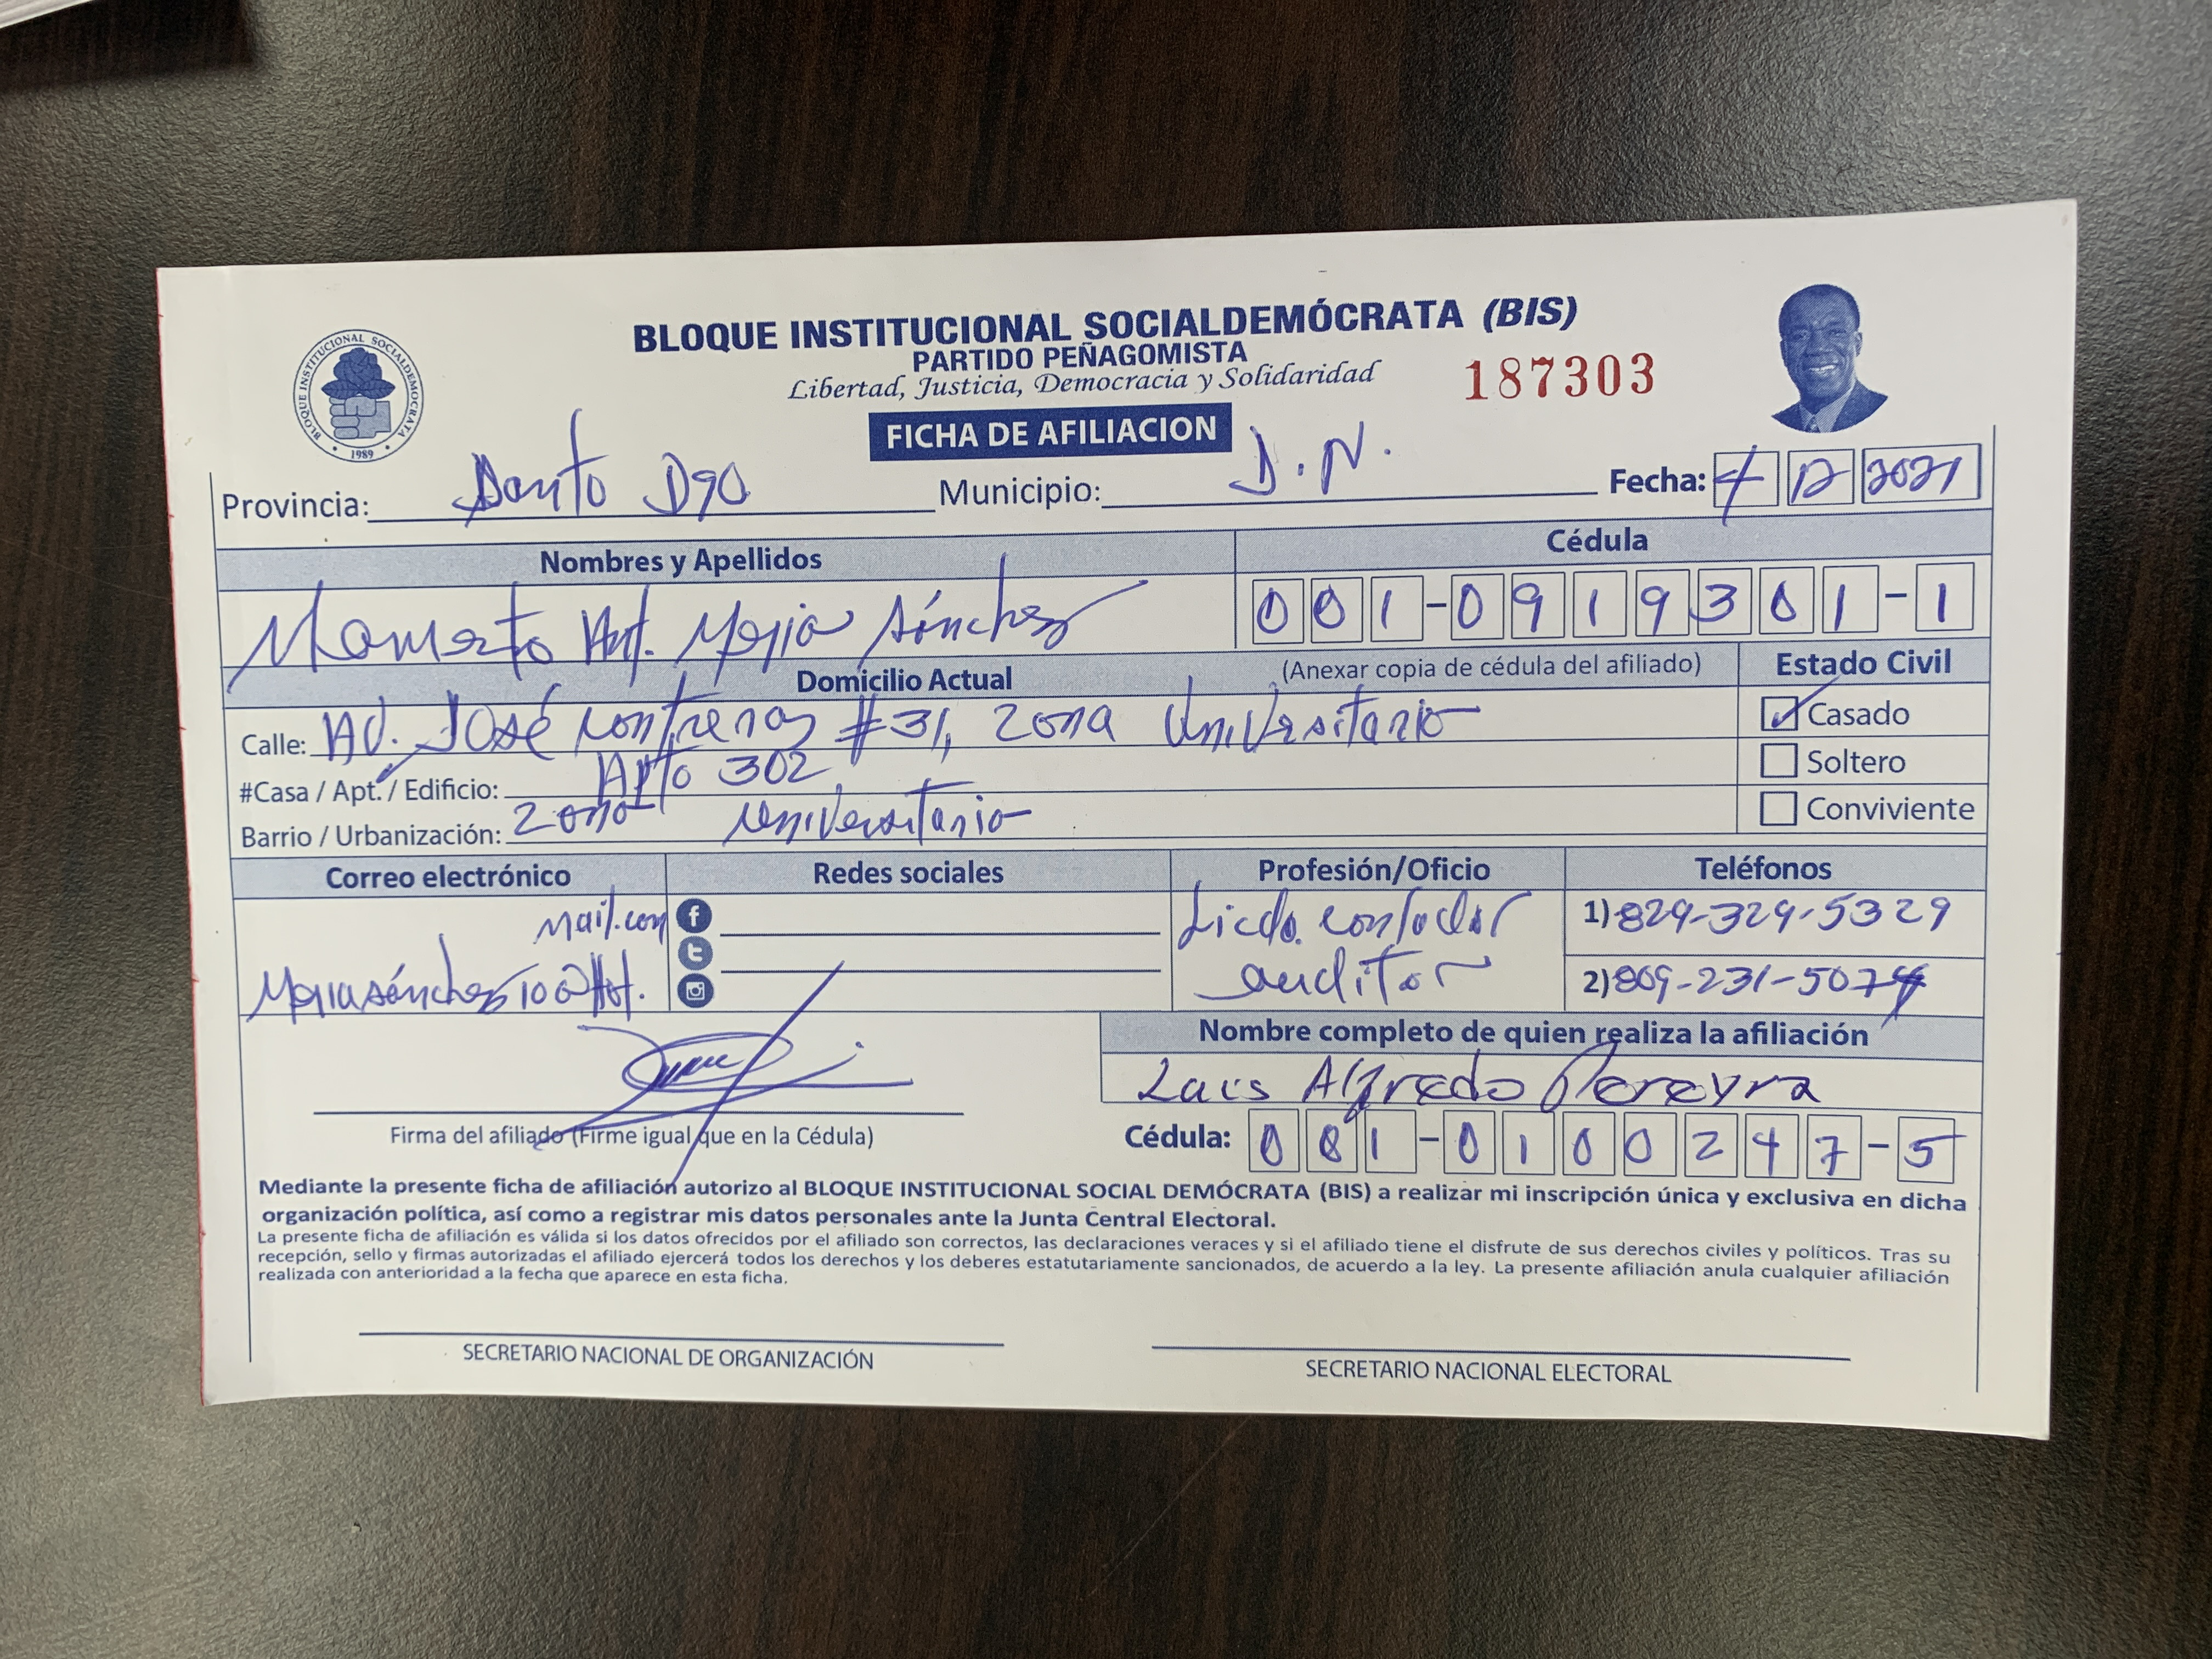 BLOQUE INSTITUCIONAL SOCIALDEMÓCRATA (BIS)
PARTIDO PEÑAGOMISTA
Libertad, Justicia, Democracia y Solidaridad
187303
BLOQUE INSTITUCIONAL SOCIALDEMOCRATA
1989
FICHA DE AFILIACION
Provincia: Santo Dgo Municipio: D.N. Fecha: 4 12 2021
Nombres y Apellidos Cédula
Ant. Mejia Sánchez 001-0919301-1
Domicilio Actual (Anexar copia de cédula del afiliado) Estado Civil
Calle: AV. José Contreras #31, Zona Universitaria Casado
#Casa / Apt. / Edificio: Apto 302 Soltero
Barrio / Urbanización: Zona Universitaria Conviviente
Correo electrónico Redes sociales Profesión/Oficio Teléfonos
mail.com Licdo. contador 1) 829-329-5329
Mejiasánchez10@Hot. auditor 2) 809-231-5074
Nombre completo de quien realiza la afiliación
Luis Alfredo Pereyra
Firma del afiliado (Firme igual que en la Cédula) Cédula: 001-0100247-5
Mediante la presente ficha de afiliación autorizo al BLOQUE INSTITUCIONAL SOCIAL DEMÓCRATA (BIS) a realizar mi inscripción única y exclusiva en dicha
organización política, así como a registrar mis datos personales ante la Junta Central Electoral.
La presente ficha de afiliación es válida si los datos ofrecidos por el afiliado son correctos, las declaraciones veraces y si el afiliado tiene el disfrute de sus derechos civiles y políticos. Tras su
recepción, sello y firmas autorizadas el afiliado ejercerá todos los derechos y los deberes estatutariamente sancionados, de acuerdo a la ley. La presente afiliación anula cualquier afiliación
realizada con anterioridad a la fecha que aparece en esta ficha.
SECRETARIO NACIONAL DE ORGANIZACIÓN SECRETARIO NACIONAL ELECTORAL